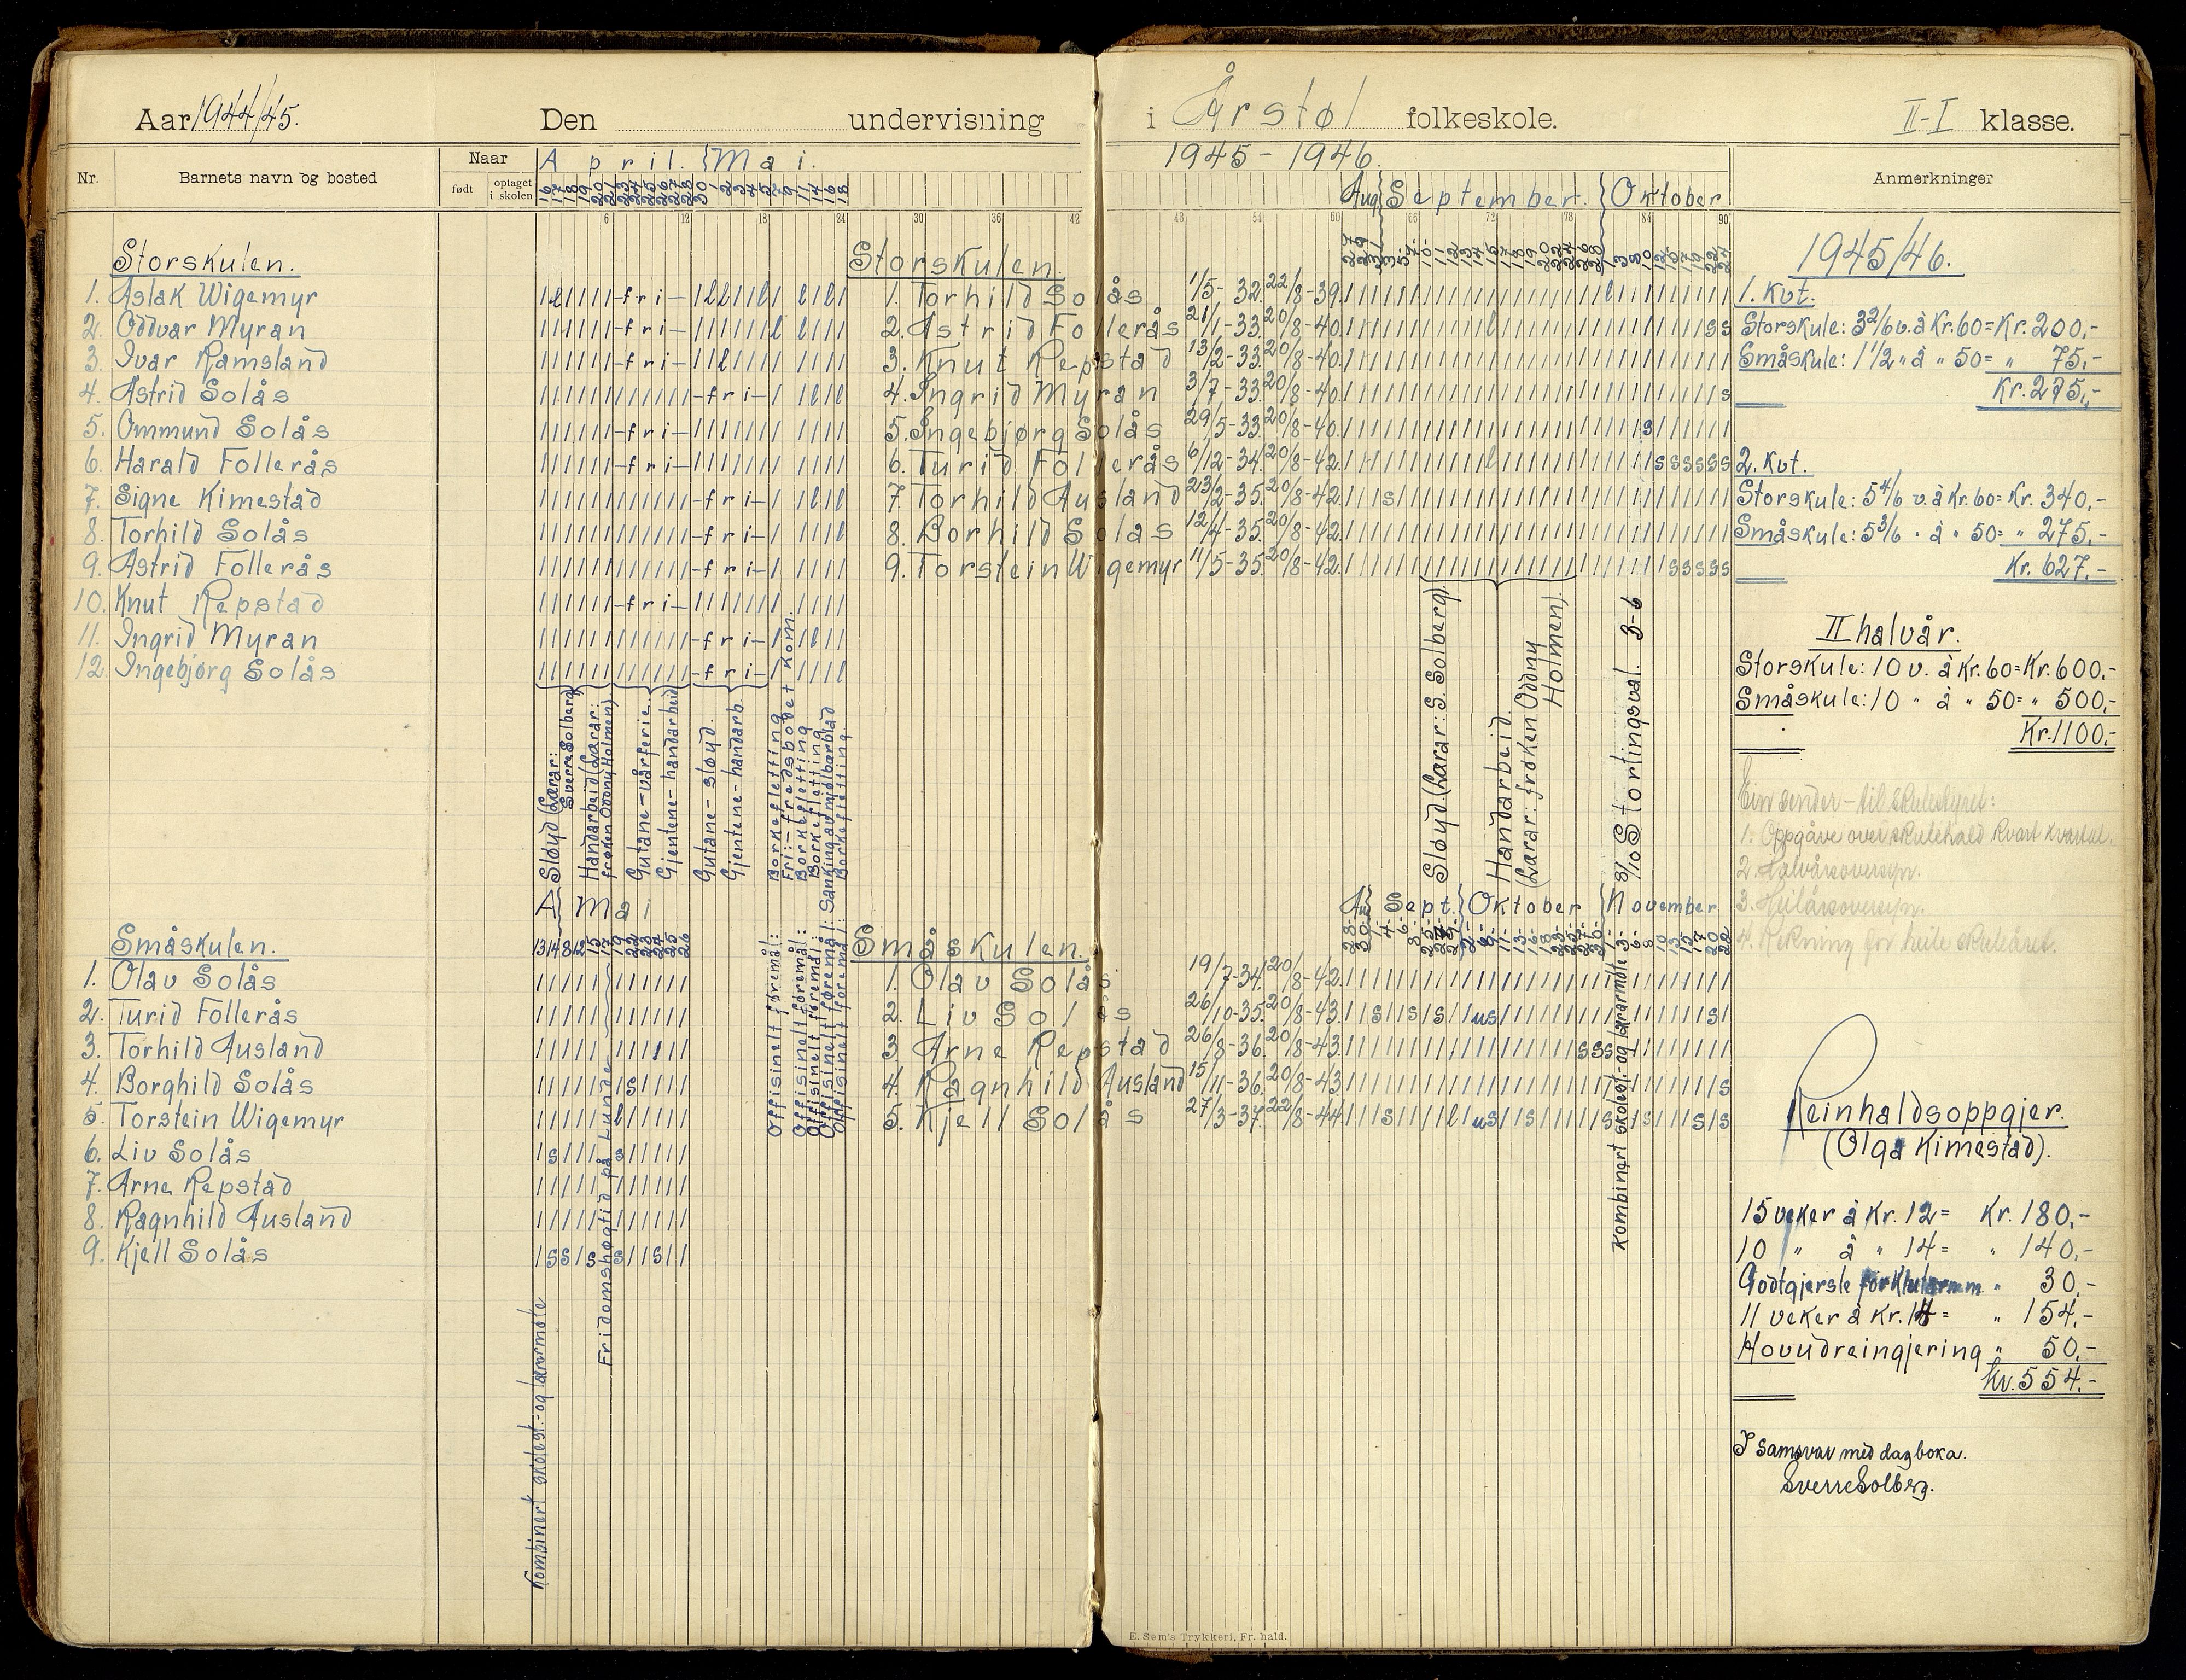 Aar 1944/45. Den undervisning i Årstøl folkeskole. II-I klasse.
Nr. Barnets navn og bosted Naar April. Mai.
født optaget i skolen
16 17 18 19 20 21 23 24 25 26 27 28 30 1 2 3 4 5 7 9 11 14 16 18
6 12 18 24 30 36 42
Storskulen.
1. Aslak Wigemyr
2. Oddvar Myran
3. Ivar Ramsland
4. Astrid Solås
5. Ommund Solås
6. Harald Follerås
7. Signe Kimestad
8. Torhild Solås
9. Astrid Follerås
10. Knut Repstad
11. Ingrid Myran
12. Ingebjørg Solås
Sløyd (Lærar:
Sverre Solberg)
Handarbeid (Lærar:
frøken Oddny Holmen)
Gutane-vårferie.
Gjentene-handarbeid
Gutane-sløyd.
Gjentene-handarb.
Offisinelt føremål: Borkefletting
Fri:-fredsbodet kom.
Offisinelt føremål: Borkefletting
Offisinelt føremål: Borkefletting
Offisinelt føremål: Sanking av mjølbærblad
Offisinelt føremål: Borkefletting
A Mai
13 14 8 12 15 17 19 22 23 24 25 26
Småskulen.
1. Olav Solås
2. Turid Follerås
3. Torhild Ausland
4. Borghild Solås
5. Torstein Wigemyr
6. Liv Solås
7. Arne Repstad
8. Ragnhild Ausland
9. Kjell Solås
Kombinert skolest.-og lærarmøte
Fridomshøgtid på Lunde
1945-1946.
Aug. September. Oktober
48 54 60 66 72 78 84 90
Storskulen.
1. Torhild Solås 1/5-32. 22/8-39.
2. Astrid Follerås 21/1-33. 20/8-40.
3. Knut Repstad 13/2-33. 20/8-40.
4. Ingrid Myran 3/7-33. 20/8-40.
5. Ingebjørg Solås 29/5-33. 20/8-40.
6. Turid Follerås 6/12-34. 20/8-42.
7. Torhild Ausland 23/2-35. 20/8-42.
8. Borhild Solås 12/4-35. 20/8-42.
9. Torstein Wigemyr 11/5-35. 20/8-42.
Sløyd. (Lærar: S. Solberg).
Handarbeid.
(Lærar: frøken Oddny
Holmen).
8/10 Stortingsval. 3-6
Aug Sept. Oktober November
Småskulen.
1. Olav Solås 19/7-34. 20/8-42.
2. Liv Solås 26/10-35. 20/8-43.
3. Arne Repstad 26/8-36. 20/8-43.
4. Ragnhild Ausland 15/11-36. 20/8-43.
5. Kjell Solås 27/3-37. 22/8-44.
Kombinert skolest.-og lærarmøte
Anmerkninger
1945/46.
1. kvt.
Storskule: 3 2/6 v. à Kr. 60 = Kr. 200,-
Småskule: 1 1/2 " à " 50 = " 75,-
Kr. 275,-
2. kvt.
Storskule: 5 4/6 v. à Kr. 60 = Kr. 340.-
Småskule: 5 3/6 " à " 50 = " 275.-
Kr. 627.-
II halvår.
Storskule: 10 v. à Kr. 60 = Kr. 600.-
Småskule: 10 " à " 50 = " 500,-
Kr. 1100.-
Ein sender - til skulestyret:
1. Oppgåve over skulehald kvart kvartal.
2. Halvårsoversyn.
3. Heilårsoversyn.
4. Rekning for heile skuleåret.
Reinhaldsoppgjer.
(Olga Kimestad).
15 veker à Kr. 12 = Kr. 180,-
10 " à " 14 = " 140,-
Godtgjersle for " 30,-
11 veker à Kr. 14 = " 154.-
Hovudreingjering " 50,-
Kr. 554.-
I samsvar med dagboka.
Sverre Solberg.
E. Sem's Trykkeri, Fr. hald.